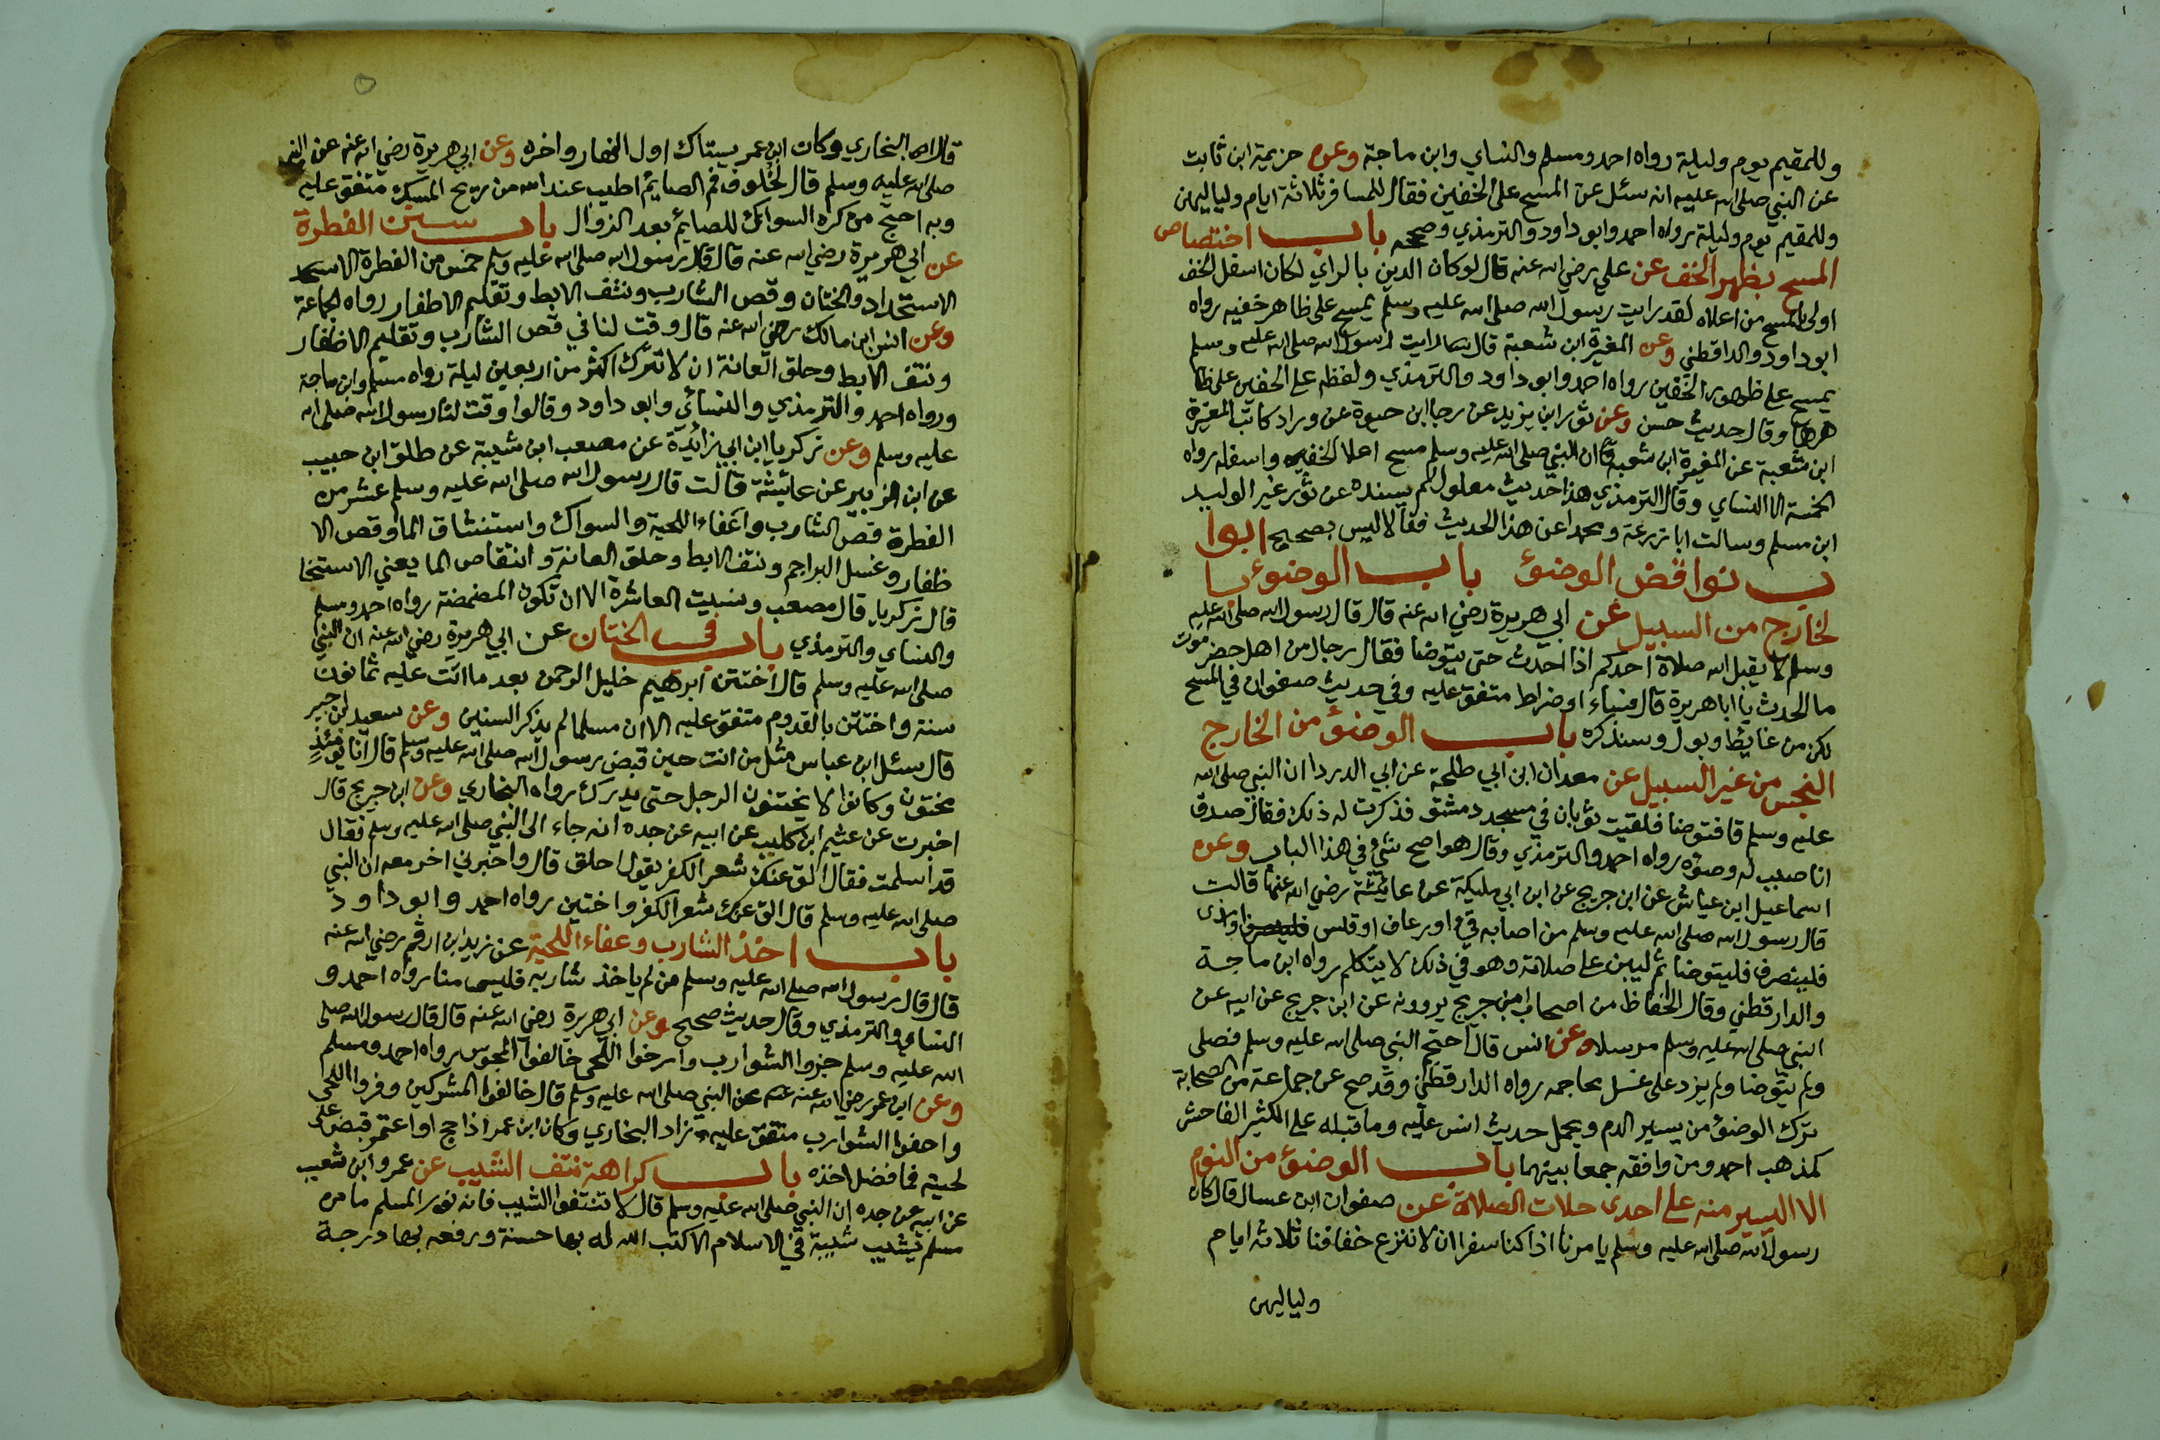 وللمقيم يوم وليلة رواه احمد ومسلم والنساي وابن ماجة وعن خزيمة ابن ثابت
عن النبي صلى الله عليه انه سئل عن المسح على الخفين فقال للمسافر ثلاثة ايام ولياليهن
وللمقيم يوم وليلة رواه احمد وابو داود والترمذي وصححه باب اختصاص
المسح بظهر الخف عن علي رضي الله عنه قال لو كان الدين بالراي لكان اسفل الخف
اولى بالمسح من اعلاه لقد رايت رسول الله صلى الله عليه وسلم يمسح على ظاهر خفيه رواه
ابو داود والداقطني وعن المغيرة ابن شعبة قال رايت رسول الله صلى الله عليه وسلم
يمسح على ظهور الخفين رواه احمد وابو داود والترمذي ولفظه على الخفين على ظا
هرهما وقال حديث حسن وعن ثور ابن يزيد عن رجا ابن حيوة عن وراد كاتب المغيرة
ابن شعبة عن المغيرة ابن شعبة ان النبي صلى الله عليه وسلم مسح اعلا الخفين واسفله رواه
الخمسة الا النساي وقال الترمذي هذا حديث معلول لم يسنده عن ثور غير الوليد
ابن مسلم وسالت ابا زرعة ومحمدا عن هذا الحديث فقالا ليس بصحيح ابوا
ب نواقض الوضؤ باب الوضوء با
لخارج من السبيل عن ابي هريرة رضي الله عنه قال قال رسول الله صلى الله عليه
وسلم لا يقبل الله صلاة احدكم اذا احدث حتى يتوضا فقال رجال من اهل حضرموت
ما الحدث يا ابا هريرة قال فساء او ضراط متفق عليه وفي حديث صفوان في المسح
لكن من غايط وبول وسنذكره باب الوضؤ من الخارج
النجس من غير السبيل عن معدان ابن ابي طلحة عن ابي الدردا ان النبي صلى الله
عليه وسلم قا فتوضا فلقيت ثوبان في مسجد دمشق فذكرت له ذلك فقال صدق
انا صببت له وضوه رواه احمد والترمذي وقال هو اصح شيء في هذا الباب وعن
اسماعيل ابن عياش عن ابن جريج عن ابن ابي مليكة عن عائشة رضي الله عنها قالت
قال رسول الله صلى الله عليه وسلم من اصابه قيء او رعاف او قلس او مذى
فلينصرف فليتوضا ثم ليبن على صلاته وهو في ذلك لا يتكلم رواه ابن ماجة
والدارقطني وقال الحفاظ من اصحاب ابن جريج يروونه عن ابن جريج عن ابيه عن
النبي صلى الله عليه وسلم مرسلا وعن انس قال احتجم النبي صلى الله عليه وسلم فصلى
ولم يتوضا ولم يزد على غسل محاجمه رواه الدارقطني وقد صح عن جماعة من الصحابة
ترك الوضؤ من يسير الدم ويحمل حديث انس عليه وما قبله على الكثير الفاحش
كمذهب احمد ومن وافقه جمعا بينهما باب الوضؤ من النوم
الا اليسير منه على احدى حلات الصلاة عن صفوان ابن عسال قال كان
رسول الله صلى الله عليه وسلم يامرنا اذا كنا سفرا ان لا ننزع خفافنا ثلاثة ايام
ولياليهن
قال البخاري وكان ابن عمر يستاك اول النهار واخره وعن ابي هريرة رضي الله عنه عن النبي
صلى الله عليه وسلم قال لخلوف فم الصايم اطيب عند الله من ريح المسك متفق عليه
وبه احتج من كره السواك للصائم بعد الزوال باب سنن الفطرة
عن ابي هريرة رضي الله عنه قال قال رسول الله صلى الله عليه وسلم خمس من الفطرة
الاستحداد والختان وقص الشارب ونتف الابط وتقليم الاظفار رواه الجماعة
وعن انس ابن مالك رضي الله عنه قال وقت لنا في قص الشارب وتقليم الاظفار
ونتف الابط وحلق العانة ان لا تترك اكثر من اربعين ليلة رواه مسلم وابن ماجة
ورواه احمد والترمذي والنسائي وابو داود وقالوا وقت لنا رسول الله صلى الله
عليه وسلم وعن زكريا ابن ابي زائدة عن مصعب ابن شيبة عن طلق ابن حبيب
عن ابن الزبير عن عائشة قالت قال رسول الله صلى الله عليه وسلم عشر من
الفطرة قص الشارب واعفاء اللحية والسواك واستنشاق الما وقص الا
ظفار وغسل البراجم ونتف الابط وحلق العانة وانتقاص الما يعني الاستنجا
قال زكريا قال مصعب ونسيت العاشرة الا ان تكون المضمضة رواه احمد ومسلم
والنساي والترمذي باب في الختان عن ابي هريرة رضي الله عنه ان النبي
صلى الله عليه وسلم قال اختتن ابرهيم خليل الرحمن بعد ما اتت عليه ثمانون
سنة واختتن بالقدوم متفق عليه الا ان مسلما لم يذكر السنين وعن سعيد ابن جبير
قال سئل ابن عباس مثل من انت حين قبض رسول الله صلى الله عليه وسلم قال انا يومئذ
مختون وكانوا لا يختنون الرجل حتى يدرك رواه البخاري وعن ابن جريج قال
اخبرت عن عثيم ابن كليب عن ابيه عن جده انه جاء الى النبي صلى الله عليه وسلم فقال
قد اسلمت فقال الق عنك شعر الكفر يقول احلق قال واخبرني اخر معه ان النبي
صلى الله عليه وسلم قال الق عنك شعر الكفر واختتن رواه احمد وابو داود
باب اخذ الشارب وعفاء اللحية عن زيد ابن ارقم رضي الله عنه
قال قال رسول الله صلى الله عليه وسلم من لم ياخذ شاربه فليس منا رواه احمد و
النساي والترمذي وقال حديث صحيح وعن ابي هريرة رضي الله عنه قال قال رسول الله صلى
الله عليه وسلم جزوا الشوارب وارخوا اللحى خالفوا المجوس رواه احمد ومسلم
وعن ابن عمر رضي الله عنه عن النبي صلى الله عليه وسلم قال خالفوا المشركين وفروا اللحى
واحفوا الشوارب متفق عليه زاد البخاري وكان ابن عمر اذا حج او اعتمر قبض على
لحيته فما فضل اخذه باب كراهة نتف الشيب عن عمرو ابن شعيب
عن ابيه عن جده ان النبي صلى الله عليه وسلم قال لا تنتفوا الشيب فانه نور المسلم ما من
مسلم يشيب شيبة في الاسلام الا كتب الله له بها حسنة ورفعه بها درجة